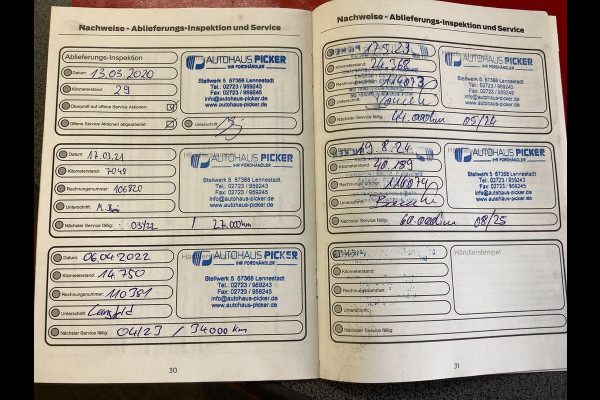 Nachweise - Ablieferungs-Inspektion und Service
Ablieferungs-Inspektion
Datum: 13.03.2020
Kilometerstand: 29
Überprüft auf offene Service Aktionen
Offene Service Aktionen abgearbeitet
Unterschrift:
AUTOHAUS PICKER
IHR FORDHÄNDLER
Stellwerk 5 57368 Lennestadt
Tel.: 02723 / 959243
Fax: 02723 / 959245
info@autohaus-picker.de
www.autohaus-picker.de
Datum: 17.03.21
Kilometerstand: 7048
Rechnungsnummer: 106820
Unterschrift:
Nächster Service fällig: 03/22 / 27.000km
AUTOHAUS PICKER
IHR FORDHÄNDLER
Stellwerk 5 57368 Lennestadt
Tel.: 02723 / 959243
Fax: 02723 / 959245
info@autohaus-picker.de
www.autohaus-picker.de
Datum: 06.04.2022
Kilometerstand: 14.750
Rechnungsnummer: 110381
Unterschrift:
Nächster Service fällig: 04/23 / 34000 km
AUTOHAUS PICKER
IHR FORDHÄNDLER
Stellwerk 5 57368 Lennestadt
Tel.: 02723 / 959243
Fax: 02723 / 959245
info@autohaus-picker.de
www.autohaus-picker.de
30
Nachweise - Ablieferungs-Inspektion und Service
17.5.23
Kilometerstand: 24.368
Rechnungsnummer:
Unterschrift:
Nächster Service fällig: 44.000km 05/24
AUTOHAUS PICKER
IHR FORDHÄNDLER
Stellwerk 5 57368 Lennestadt
Tel.: 02723 / 959243
Fax: 02723 / 959245
info@autohaus-picker.de
www.autohaus-picker.de
19.8.24
Kilometerstand: 40.189
Rechnungsnummer:
Unterschrift:
Nächster Service fällig: 60.000km 08/25
AUTOHAUS PICKER
IHR FORDHÄNDLER
Stellwerk 5 57368 Lennestadt
Tel.: 02723 / 959243
Fax: 02723 / 959245
info@autohaus-picker.de
www.autohaus-picker.de
Kilometerstand:
Rechnungsnummer:
Unterschrift:
Nächster Service fällig:
Händlerstempel
31